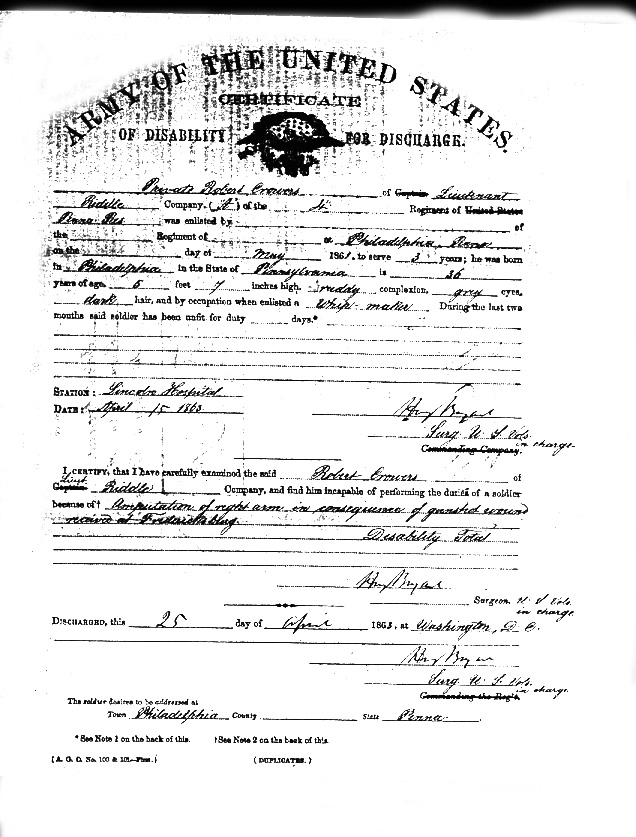 ARMY OF THE UNITED STATES.
CERTIFICATE
OF DISABILITY FOR DISCHARGE.
Private Robert Crowers of Captain Lieutenant
Riddle Company, (A) of the Regiment of United States
Penna Res was enlisted by of
the Regiment of at Philadelphia, Penna
on the day of May 1861, to serve 3 years; he was born
in Philadelphia in the State of Pennsylvania is 36
years of age, 5 feet 7 inches high, ruddy complexion, grey eyes,
dark hair, and by occupation when enlisted a Whip-maker During the last two
months said soldier has been unfit for duty days.*
STATION: Lincoln Hospital
DATE: April 15 1863
Surg U. S. Vols.
in charge.
Commanding Company.
I CERTIFY, that I have carefully examined the said Robert Crowers of
Lieut
Captain Riddle Company, and find him incapable of performing the duties of a soldier
because of† Amputation of right arm in consequence of gunshot wound
received at Fredericksburg
Disability Total
Surgeon. U. S. Vols.
in charge
DISCHARGED, this 25 day of April 1863, at Washington, D C.
Surg U. S. Vols.
in charge
Commanding the Reg't.
The soldier desires to be addressed at
Town Philadelphia County State Penna.
* See Note 1 on the back of this. †See Note 2 on the back of this.
(A. G. O. No. 100 & 101—First.) (DUPLICATES.)